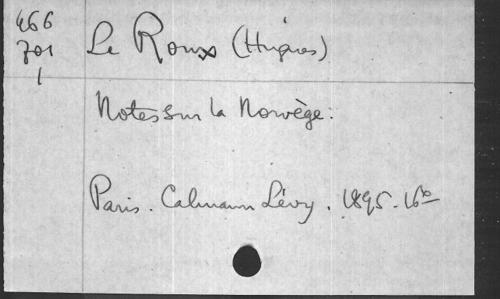 466
701
1
Le Roux (Hugues)
Notes sur la Norvège.
Paris. Calmann Lévy. 1895. 16º